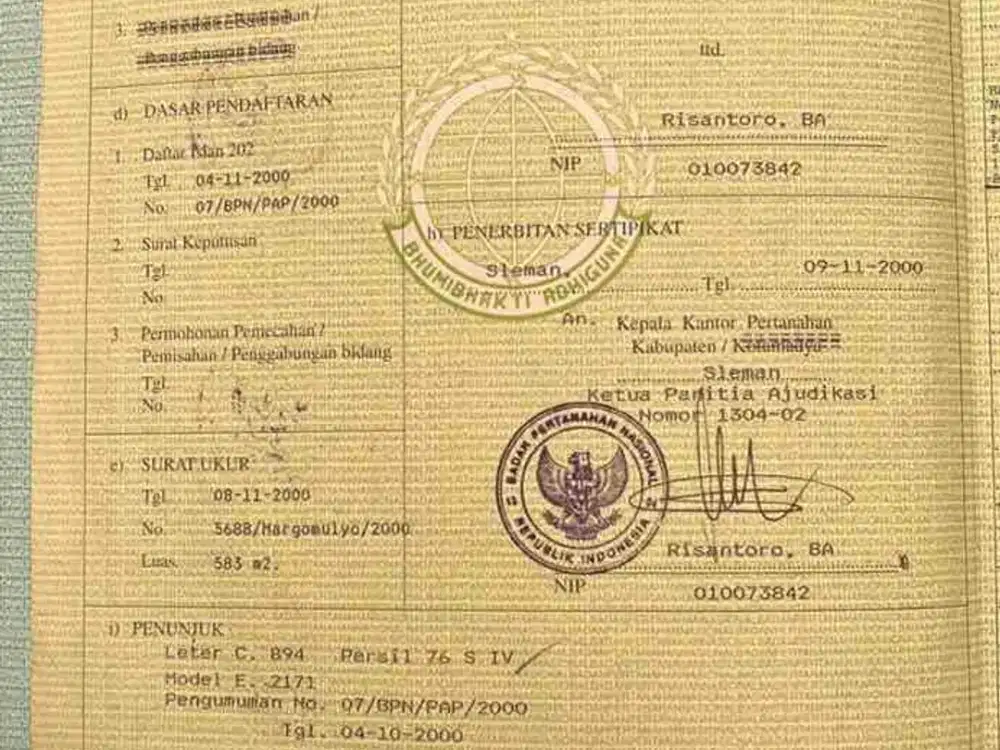 3.
Penggabungan bidang
d) DASAR PENDAFTARAN
1. Daftar Isian 202
Tgl. 04-11-2000
No. 07/BPN/PAP/2000
2. Surat Keputusan
Tgl.
No.
3. Permohonan Pemecahan /
Pemisahan / Penggabungan bidang
Tgl.
No.
e) SURAT UKUR
Tgl. 08-11-2000
No. 5688/Margomulyo/2000
Luas. 583 m2.
ttd.
Risantoro, BA
NIP 010073842
h) PENERBITAN SERTIPIKAT
BHUMIBHAKTI ADHIGUNA
Sleman, Tgl. 09-11-2000
An. Kepala Kantor Pertanahan
Kabupaten / Kotamadya
Sleman
Ketua Panitia Ajudikasi
Nomor 1304-02
BADAN PERTANAHAN NASIONAL
REPUBLIK INDONESIA
Risantoro, BA
NIP 010073842
i) PENUNJUK
Leter C. 894 Persil 76 S IV
Model E. .2171
Pengumuman No. 07/BPN/PAP/2000
Tgl. 04-10-2000